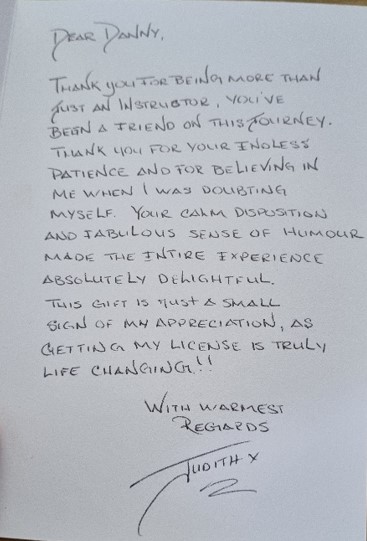 DEAR DANNY,
THANK YOU FOR BEING MORE THAN
JUST AN INSTRUCTOR, YOU'VE
BEEN A FRIEND ON THIS JOURNEY.
THANK YOU FOR YOUR ENDLESS
PATIENCE AND FOR BELIEVING IN
ME WHEN I WAS DOUBTING
MYSELF. YOUR CALM DISPOSITION
AND FABULOUS SENSE OF HUMOUR
MADE THE ENTIRE EXPERIENCE
ABSOLUTELY DELIGHTFUL.
THIS GIFT IS JUST A SMALL
SIGN OF MY APPRECIATION, AS
GETTING MY LICENSE IS TRULY
LIFE CHANGING!!
WITH WARMEST
REGARDS
JUDITH X